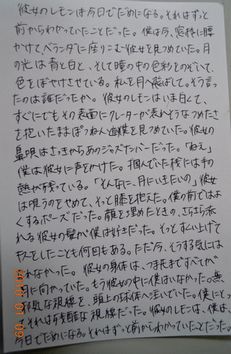 彼女のレモンは今日でだめになる。それはずっと
前からわかっていたことだった。僕は今、窓枠に腰
かけて、ベランダに座りこむ彼女を見つめていた。月
の光は青と白と、そして瞳の中の色彩をのぞいて、
色をぼやけさせている。私を月へ飛ばして。そう言っ
たのは誰だったか。彼女のレモンはいま白くて、
すぐにでもその表面にクレーターが表れそうなつめたさ
を抱いたままぽつねんと僕を見つめていた。彼女の
鼻唄はさっきからあのジャズナンバーだった。「ねえ」
僕は彼女に声をかけた。掴んでいた桟には手の
熱が移っている。「そんなに、月にいきたいの」彼女
は唄うのをやめて、そっと膝を抱えた。僕の前ではよ
くするポーズだった。顔を埋めたときの、さらさら流
れる彼女の髪が僕は好きだった。そっと払い上げて
キスをしたことも何回もある。ただ今、そうする気には
なれなかった。彼女の身体は、つま先まですべてが
月に向かっていた。もう彼女の中に僕はいなかった。無
邪気な視線を、頭上の球体へ注いでいた。僕にとって
それは残酷な視線だった。彼女のレモンは、僕は、
今日でだめになる。それはずっと前からわかっていたことだった。